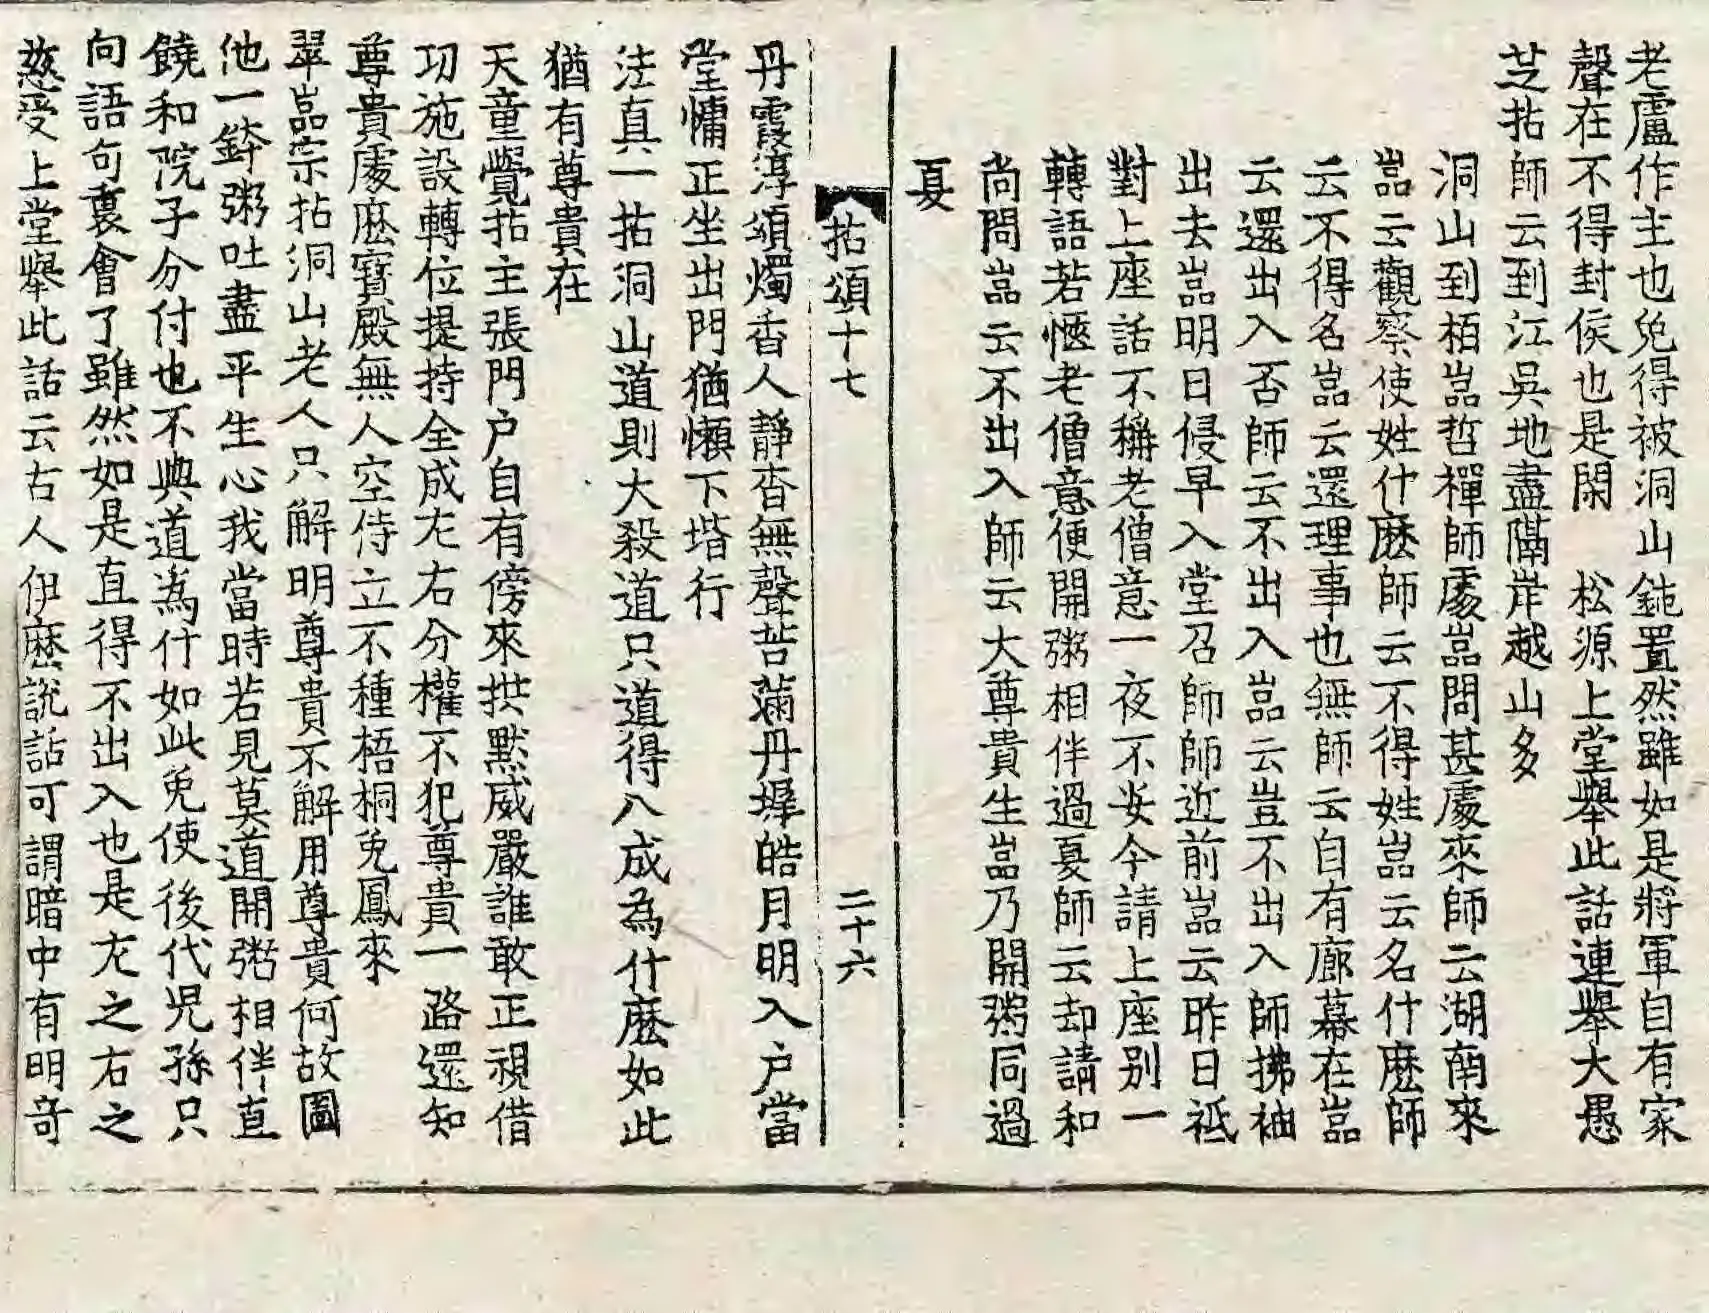 老盧作主也免得被洞山鈍置然雖如是將軍自有家
聲在不得封侯也是閑　松源上堂舉此話連舉大愚
芝拈師云到江吳地盡隔岸越山多
洞山到栢嵓哲禪師處嵓問甚處來師云湖南來
嵓云觀察使姓什麽師云不得姓嵓云名什麽師
云不得名嵓云還理事也無師云自有廊幕在嵓
云還出入否師云不出入嵓云豈不出入師拂袖
出去嵓明日侵早入堂召師師近前嵓云昨日祗
對上座話不稱老僧意一夜不安今請上座别一
轉語若愜老僧意便開粥相伴過夏師云却請和
尚問嵓云不出入師云大尊貴生嵓乃開粥同過
夏
拈頌十七　二十六
丹霞淳頌燭香人靜杳無聲苔滿丹墀皓月明入户當
堂慵正坐出門猶懶下堦行
法真一拈洞山道則大殺道只道得八成為什麽如此
猶有尊貴在
天童覺拈主張門户自有傍來拱默威嚴誰敢正視借
功施設轉位提持全成左右分權不犯尊貴一路還知
尊貴處麽寳殿無人空侍立不種梧桐免鳳來
翠嵓宗拈洞山老人只解明尊貴不解用尊貴何故圖
他一鉢粥吐盡平生心我當時若見莫道開粥相伴直
饒和院子分付也不與道為什如此免使後代兒孫只
向語句裏會了雖然如是直得不出入也是左之右之
慈受上堂舉此話云古人伊麽說話可謂暗中有明竒